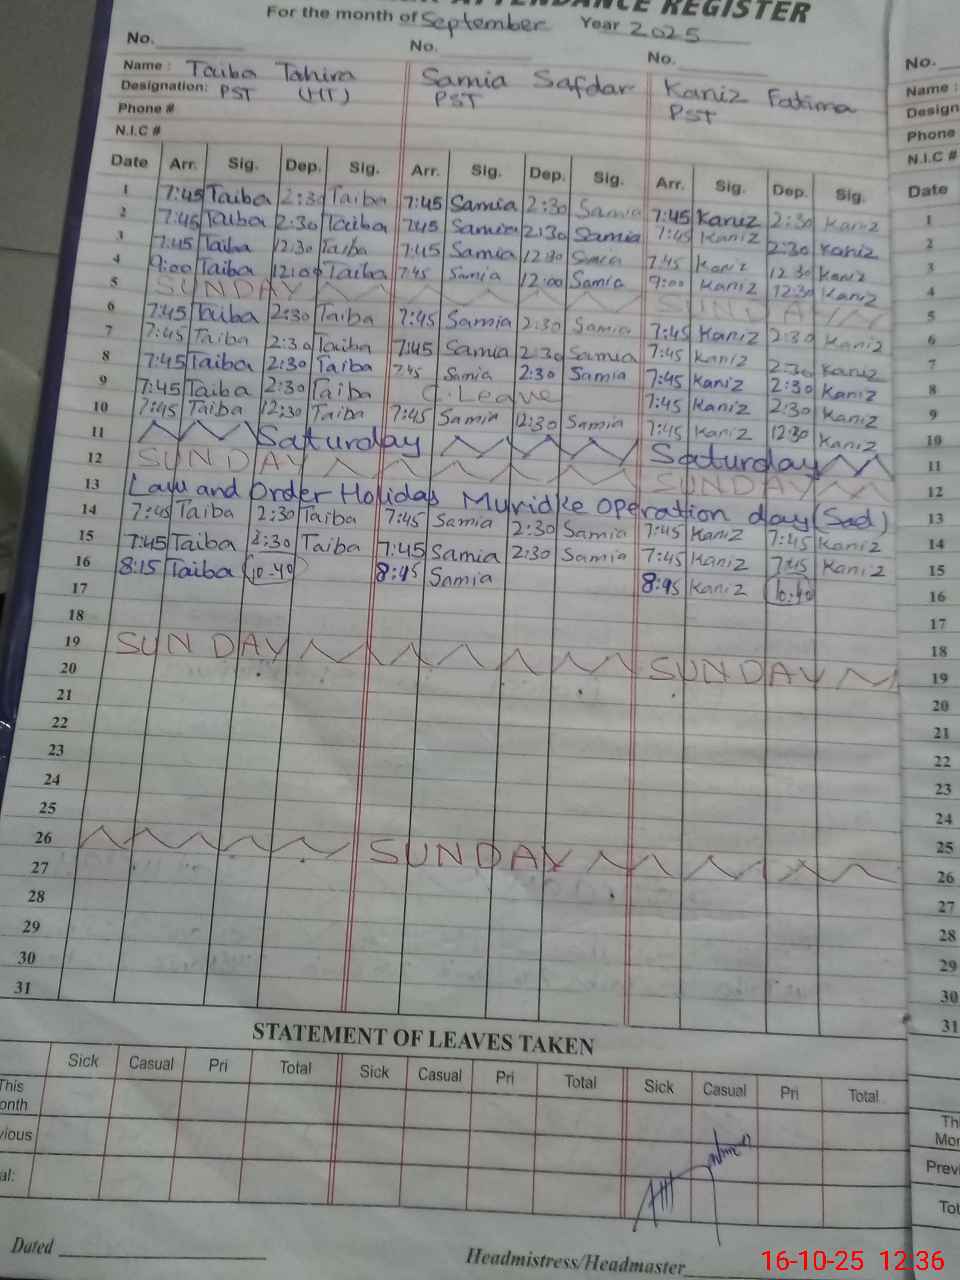 ATTENDANCE REGISTER
For the month of September Year 2025
No. No. No. No.
Name : Taiba Tahira Samia Safdar Kaniz Fatima Name :
Designation: PST (HT) PST PST Design
Phone # Phone
N.I.C # N.I.C #
Date Arr. Sig. Dep. Sig. Arr. Sig. Dep. Sig. Arr. Sig. Dep. Sig. Date
1 7:45 Taiba 2:30 Taiba 7:45 Samia 2:30 Samia 7:45 Kaniz 2:30 Kaniz 1
2 7:45 Taiba 2:30 Taiba 7:45 Samia 2:30 Samia 7:45 Kaniz 2:30 Kaniz 2
3 7:45 Taiba 12:30 Taiba 7:45 Samia 12:30 Samia 7:45 Kaniz 12:30 Kaniz 3
4 9:00 Taiba 12:00 Taiba 7:45 Samia 12:00 Samia 9:00 Kaniz 12:30 Kaniz 4
5 SUNDAY SUNDAY 5
6 7:45 Taiba 2:30 Taiba 7:45 Samia 2:30 Samia 7:45 Kaniz 2:30 Kaniz 6
7 7:45 Taiba 2:30 Taiba 7:45 Samia 2:30 Samia 7:45 Kaniz 2:30 Kaniz 7
8 7:45 Taiba 2:30 Taiba 7:45 Samia 2:30 Samia 7:45 Kaniz 2:30 Kaniz 8
9 7:45 Taiba 2:30 Taiba C.Leave 7:45 Kaniz 2:30 Kaniz 9
10 7:45 Taiba 12:30 Taiba 7:45 Samia 12:30 Samia 7:45 Kaniz 12:30 Kaniz 10
11 Saturday Saturday 11
12 SUNDAY SUNDAY 12
13 Law and Order Holiday Muridke operation day (Sad) 13
14 7:45 Taiba 2:30 Taiba 7:45 Samia 2:30 Samia 7:45 Kaniz 7:45 Kaniz 14
15 7:45 Taiba 2:30 Taiba 7:45 Samia 2:30 Samia 7:45 Kaniz 7:45 Kaniz 15
16 8:15 Taiba 10-40 8:45 Samia 8:45 Kaniz 10:40 16
17 17
18 18
19 SUNDAY SUNDAY 19
20 20
21 21
22 22
23 23
24 24
25 25
26 SUNDAY 26
27 27
28 28
29 29
30 30
31 31
STATEMENT OF LEAVES TAKEN
Sick Casual Pri Total Sick Casual Pri Total Sick Casual Pri Total
This onth Thi Mor
vious Previ
al: Tot
Dated Headmistress/Headmaster
16-10-25 12:36